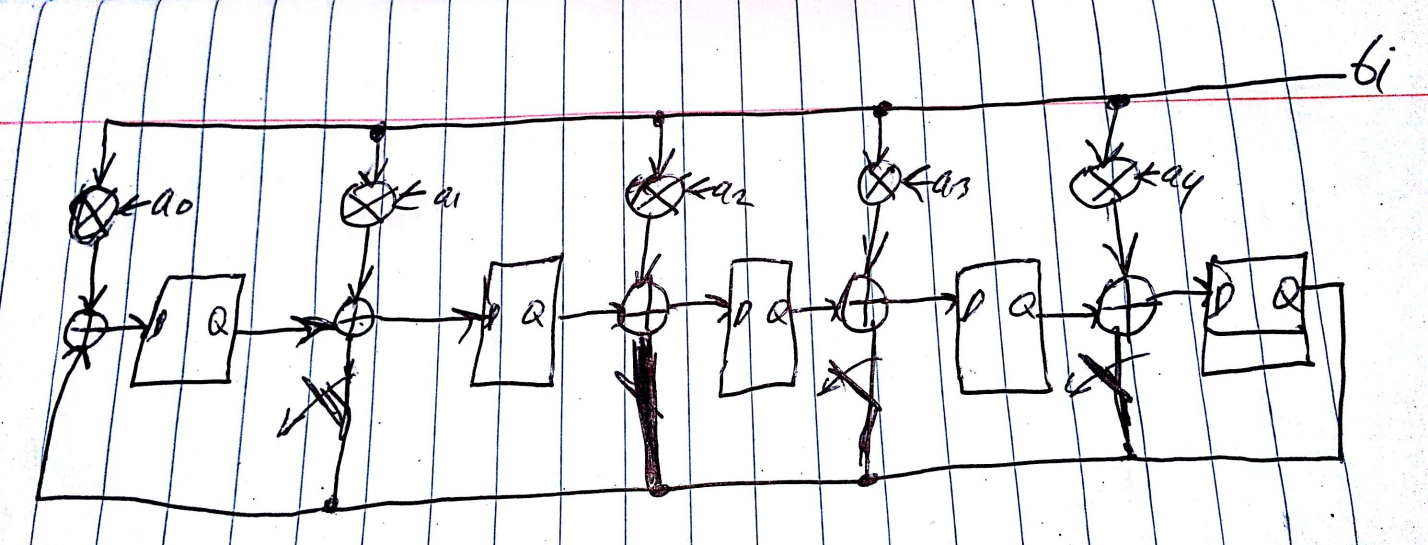 bi
←a0 ←a1 ←a2 ←a3 ←a4
D Q D Q D Q D Q D Q